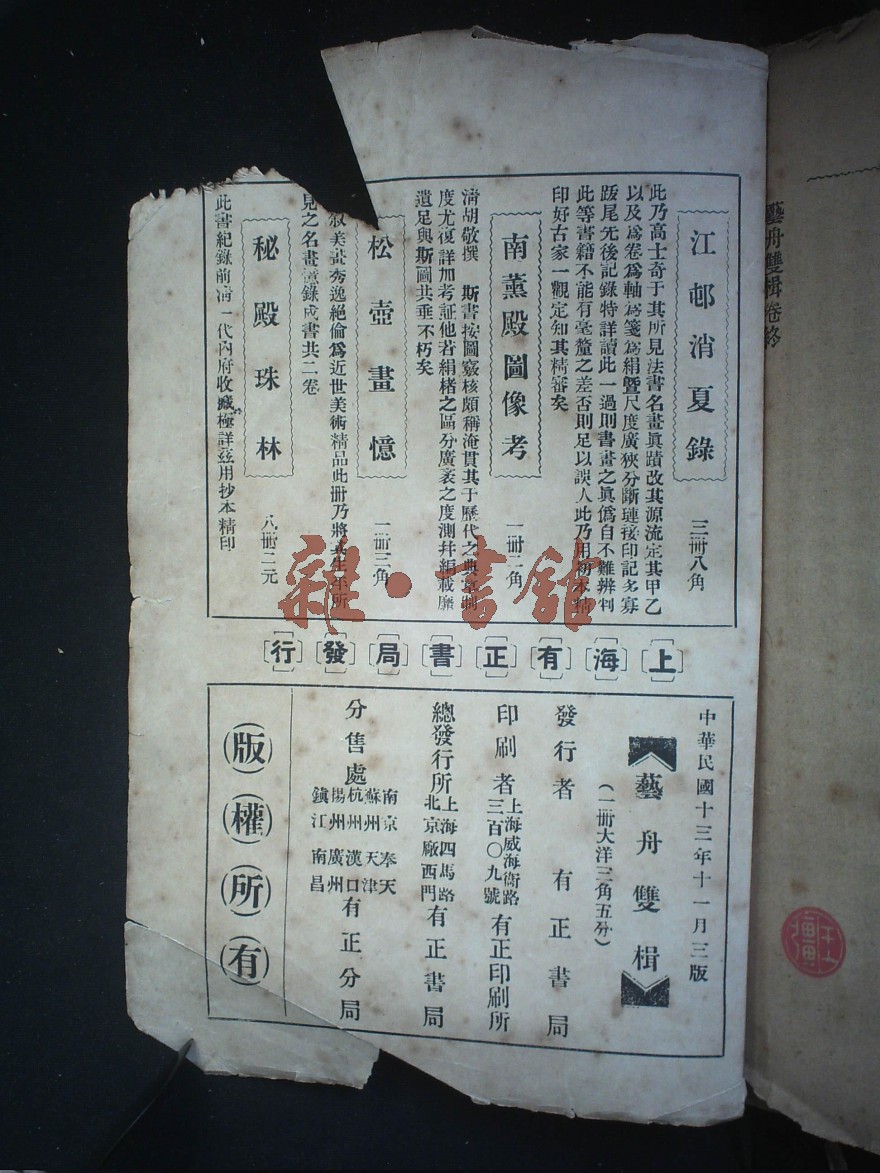 藝舟雙楫卷終
江邨消夏錄
三冊八角
此乃高士奇于其所見法書名畫眞蹟改其源流定其甲乙
以及爲卷爲軸爲箋爲絹曁尺度廣狹分斷璉接印記多寡
跋尾先後記錄特詳讀此一過則書畫之眞僞自不難辨判
此等書籍不能有毫釐之差否則足以誤人此乃用初本精
印好古家一觀定知其精審矣
南薰殿圖像考
一冊二角
淸胡敬撰 斯書按圖竅核頗稱淹貫其于歷代之典章制
度尤復詳加考証他若絹楮之區分廣袤之度測幷絹載靡
遺足與斯圖共垂不朽矣
松壺畫憶
一冊二角
叔美畫秀逸絕倫爲近世美術精品此冊乃將其生平所
見之名畫憶錄成書共二卷
秘殿珠林
八冊二元
此書紀錄前淸一代內府收藏極詳茲用抄本精印
上海有正書局發行
中華民國十三年十一月三版
藝舟雙楫
(一冊大洋三角五分)
發行者 有正書局
印刷者 上海威海衞路三百〇九號 有正印刷所
總發行所 上海四馬路 北京廠西門 有正書局
分售處 南京 奉天 蘇州 天津 杭州 漢口 揚州 廣州 鎭江 南昌 有正分局
版權所有
雜·書館